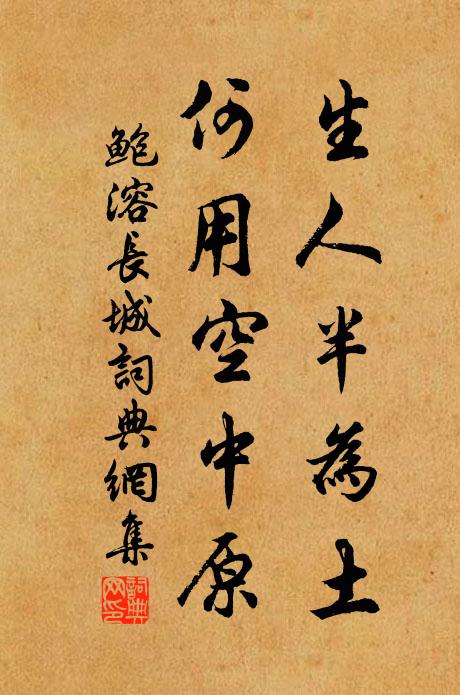 生人半為土
何用空中原
鮑溶長城詞典網集
詞典
网印